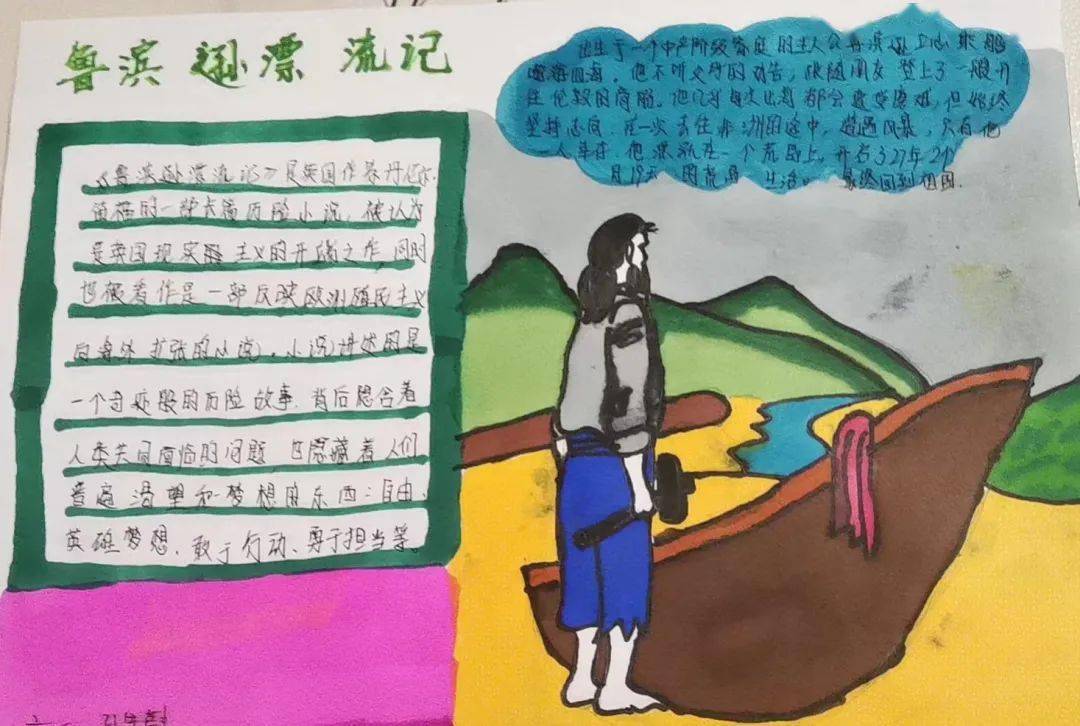 鲁滨逊漂流记
《鲁滨逊漂流记》是英国作家丹尼尔·
笛福的一部长篇历险小说，被认为
是英国现实主义的开端之作，同时
也被看作是一部反映欧洲殖民主义
向海外扩张的小说。小说讲述的是
一个奇迹般的历险故事，背后隐含着
人类共同面临的问题，也隐藏着人们
普遍渴望和梦想的东西：自由、
英雄梦想、敢于行动、勇于担当等。
出生于一个中产阶级家庭的主人公鲁滨逊
遨游四海，他不听父母的劝告，跟随朋友登上了一艘开
往伦敦的商船。他几乎每次出海都会遭受磨难，但始终
坚持志向，在一次去往非洲的途中，遭遇风暴，只有他
一人幸存，他漂流在一个荒岛上，开启了27年2个
月19天的荒岛生活。最终回到祖国.